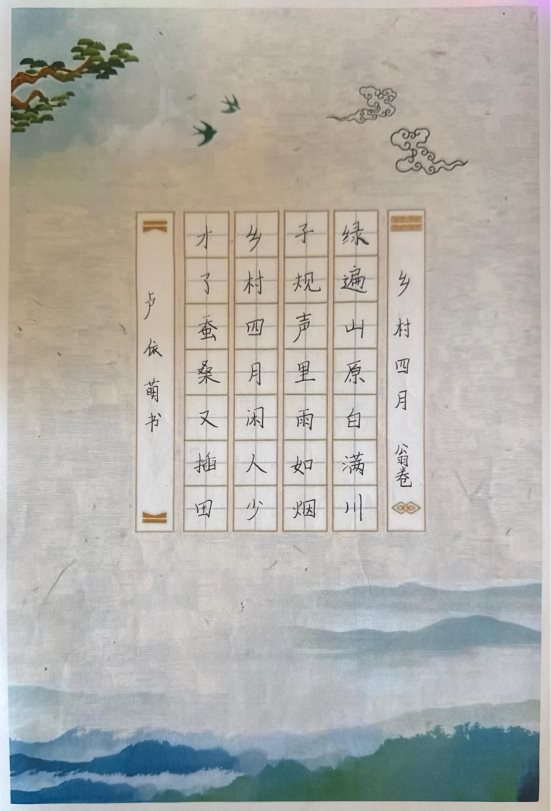 乡村四月 翁卷
绿遍山原白满川
子规声里雨如烟
乡村四月闲人少
才了蚕桑又插田
卢依萌书